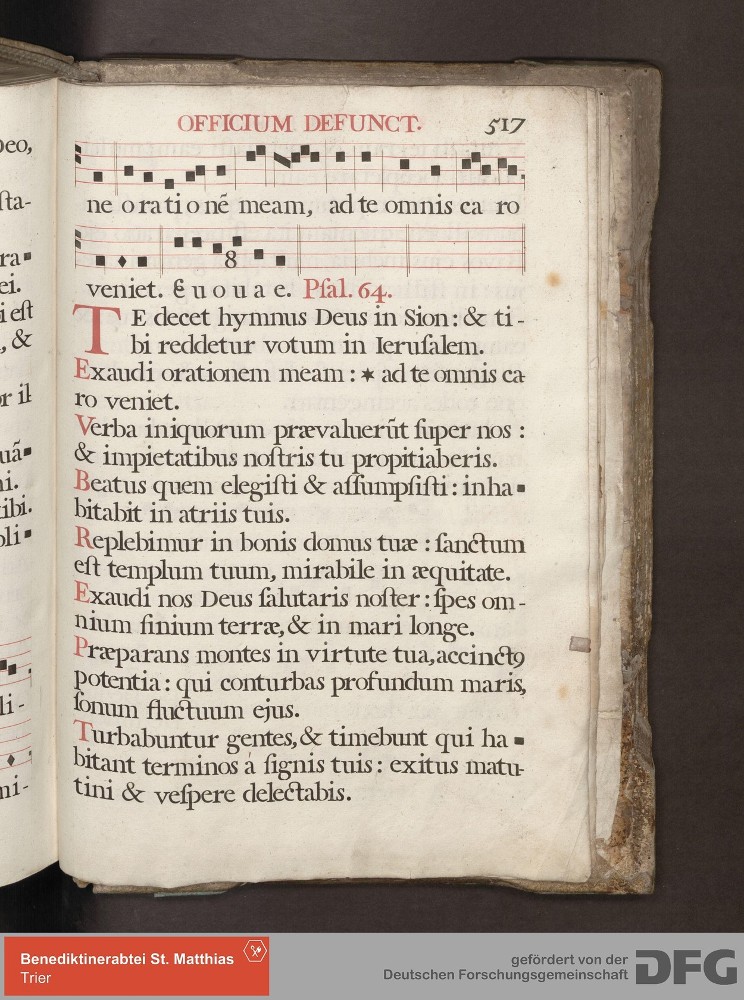 OFFICIUM DEFUNCT. 517
ne orationē meam, ad te omnis ca ro
8
veniet. E u o u a e. Pſal. 64.
TE decet hymnus Deus in Sion: & ti-
bi reddetur votum in Ieruſalem.
Exaudi orationem meam: * ad te omnis ca-
ro veniet.
Verba iniquorum prævaluerūt ſuper nos:
& impietatibus noſtris tu propitiaberis.
Beatus quem elegiſti & aſſumpſiſti: inha-
bitabit in atriis tuis.
Replebimur in bonis domus tuæ: ſanctum
eſt templum tuum, mirabile in æquitate.
Exaudi nos Deus ſalutaris noſter: ſpes om-
nium finium terræ, & in mari longe.
Præparans montes in virtute tua, accinctꝰ
potentia: qui conturbas profundum maris,
ſonum fluctuum ejus.
Turbabuntur gentes, & timebunt qui ha-
bitant terminos á ſignis tuis: exitus matu-
tini & veſpere delectabis.
Deo,
ſta-
ra-
ei.
i eſt
, &
or il
uā-
ni.
tibi.
oli-
li-
ni-
Benediktinerabtei St. Matthias
Trier
gefördert von der
Deutschen Forschungsgemeinschaft
DFG